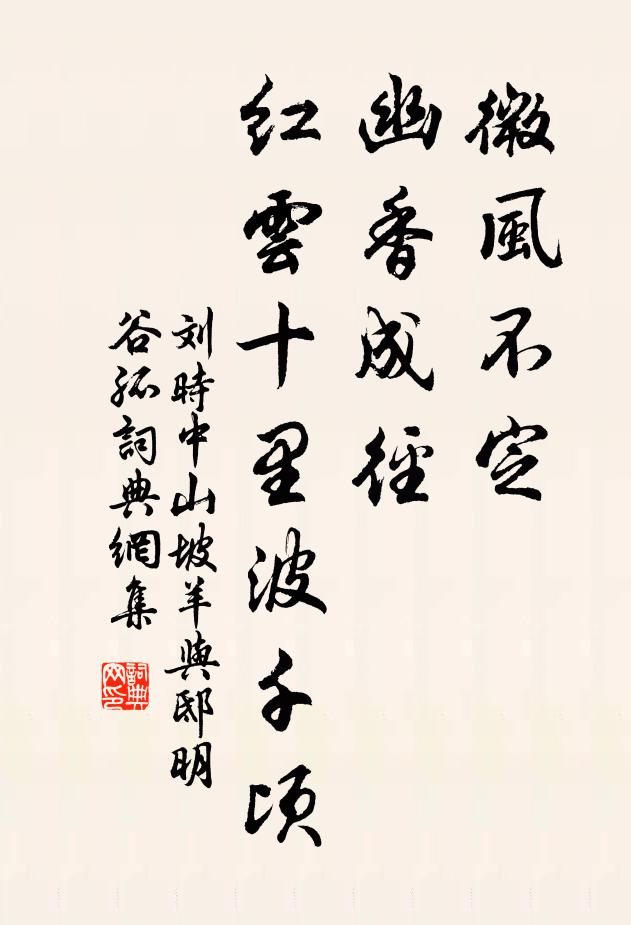 微風不定
幽香成徑
紅雲十里波千頃
刘時中山坡羊與邸明
谷孤詞典網集
詞典網印